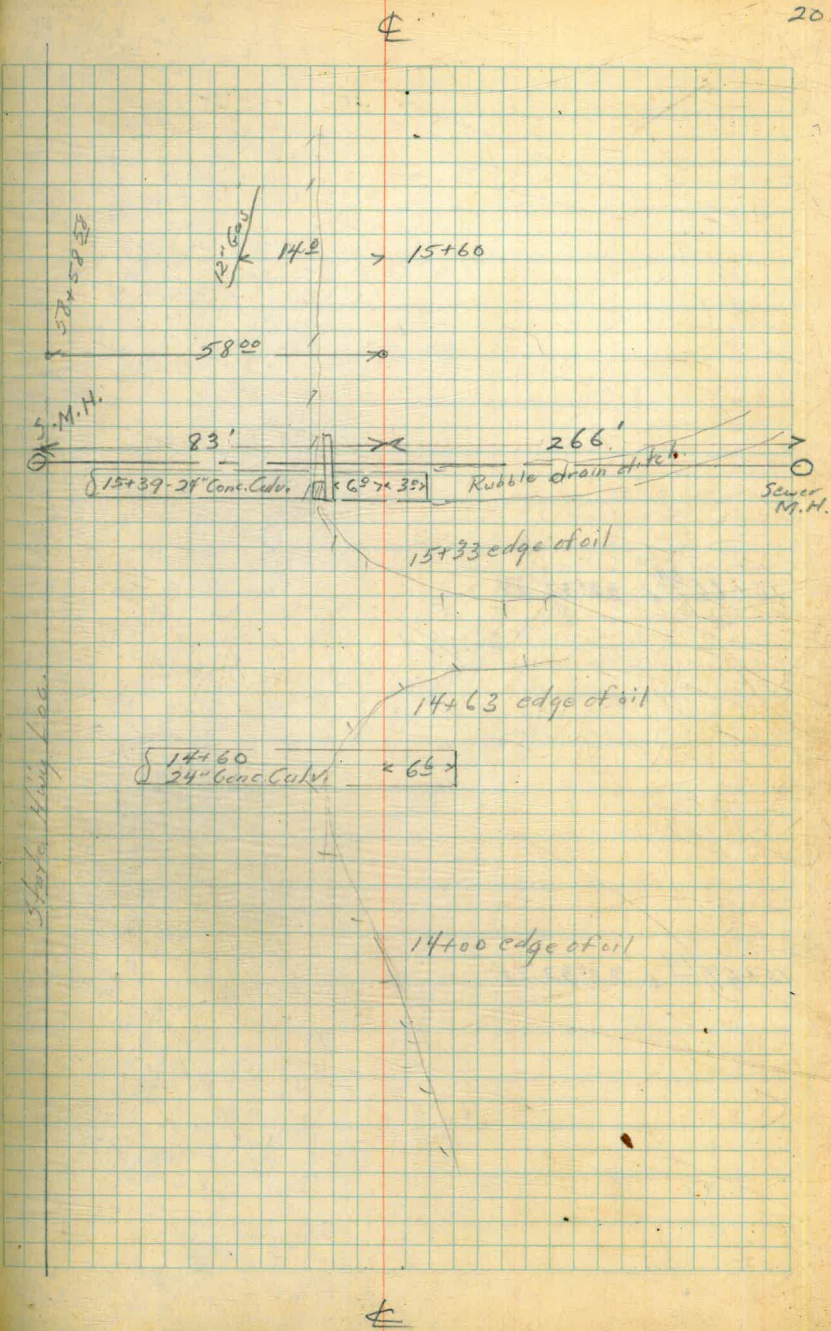 20
℄
58+58 50
12" Gav
14 0
15+60
58 00
S.M.H.
83'
266'
15+39-24" Conc. Culv.
6 0
3 0
Rubble drain ditch
Sewer
M.H.
15+33 edge of oil
14+63 edge of oil
14+60
24" Conc. Culv.
6 6
State Hwy Loc.
14+00 edge of oil
℄